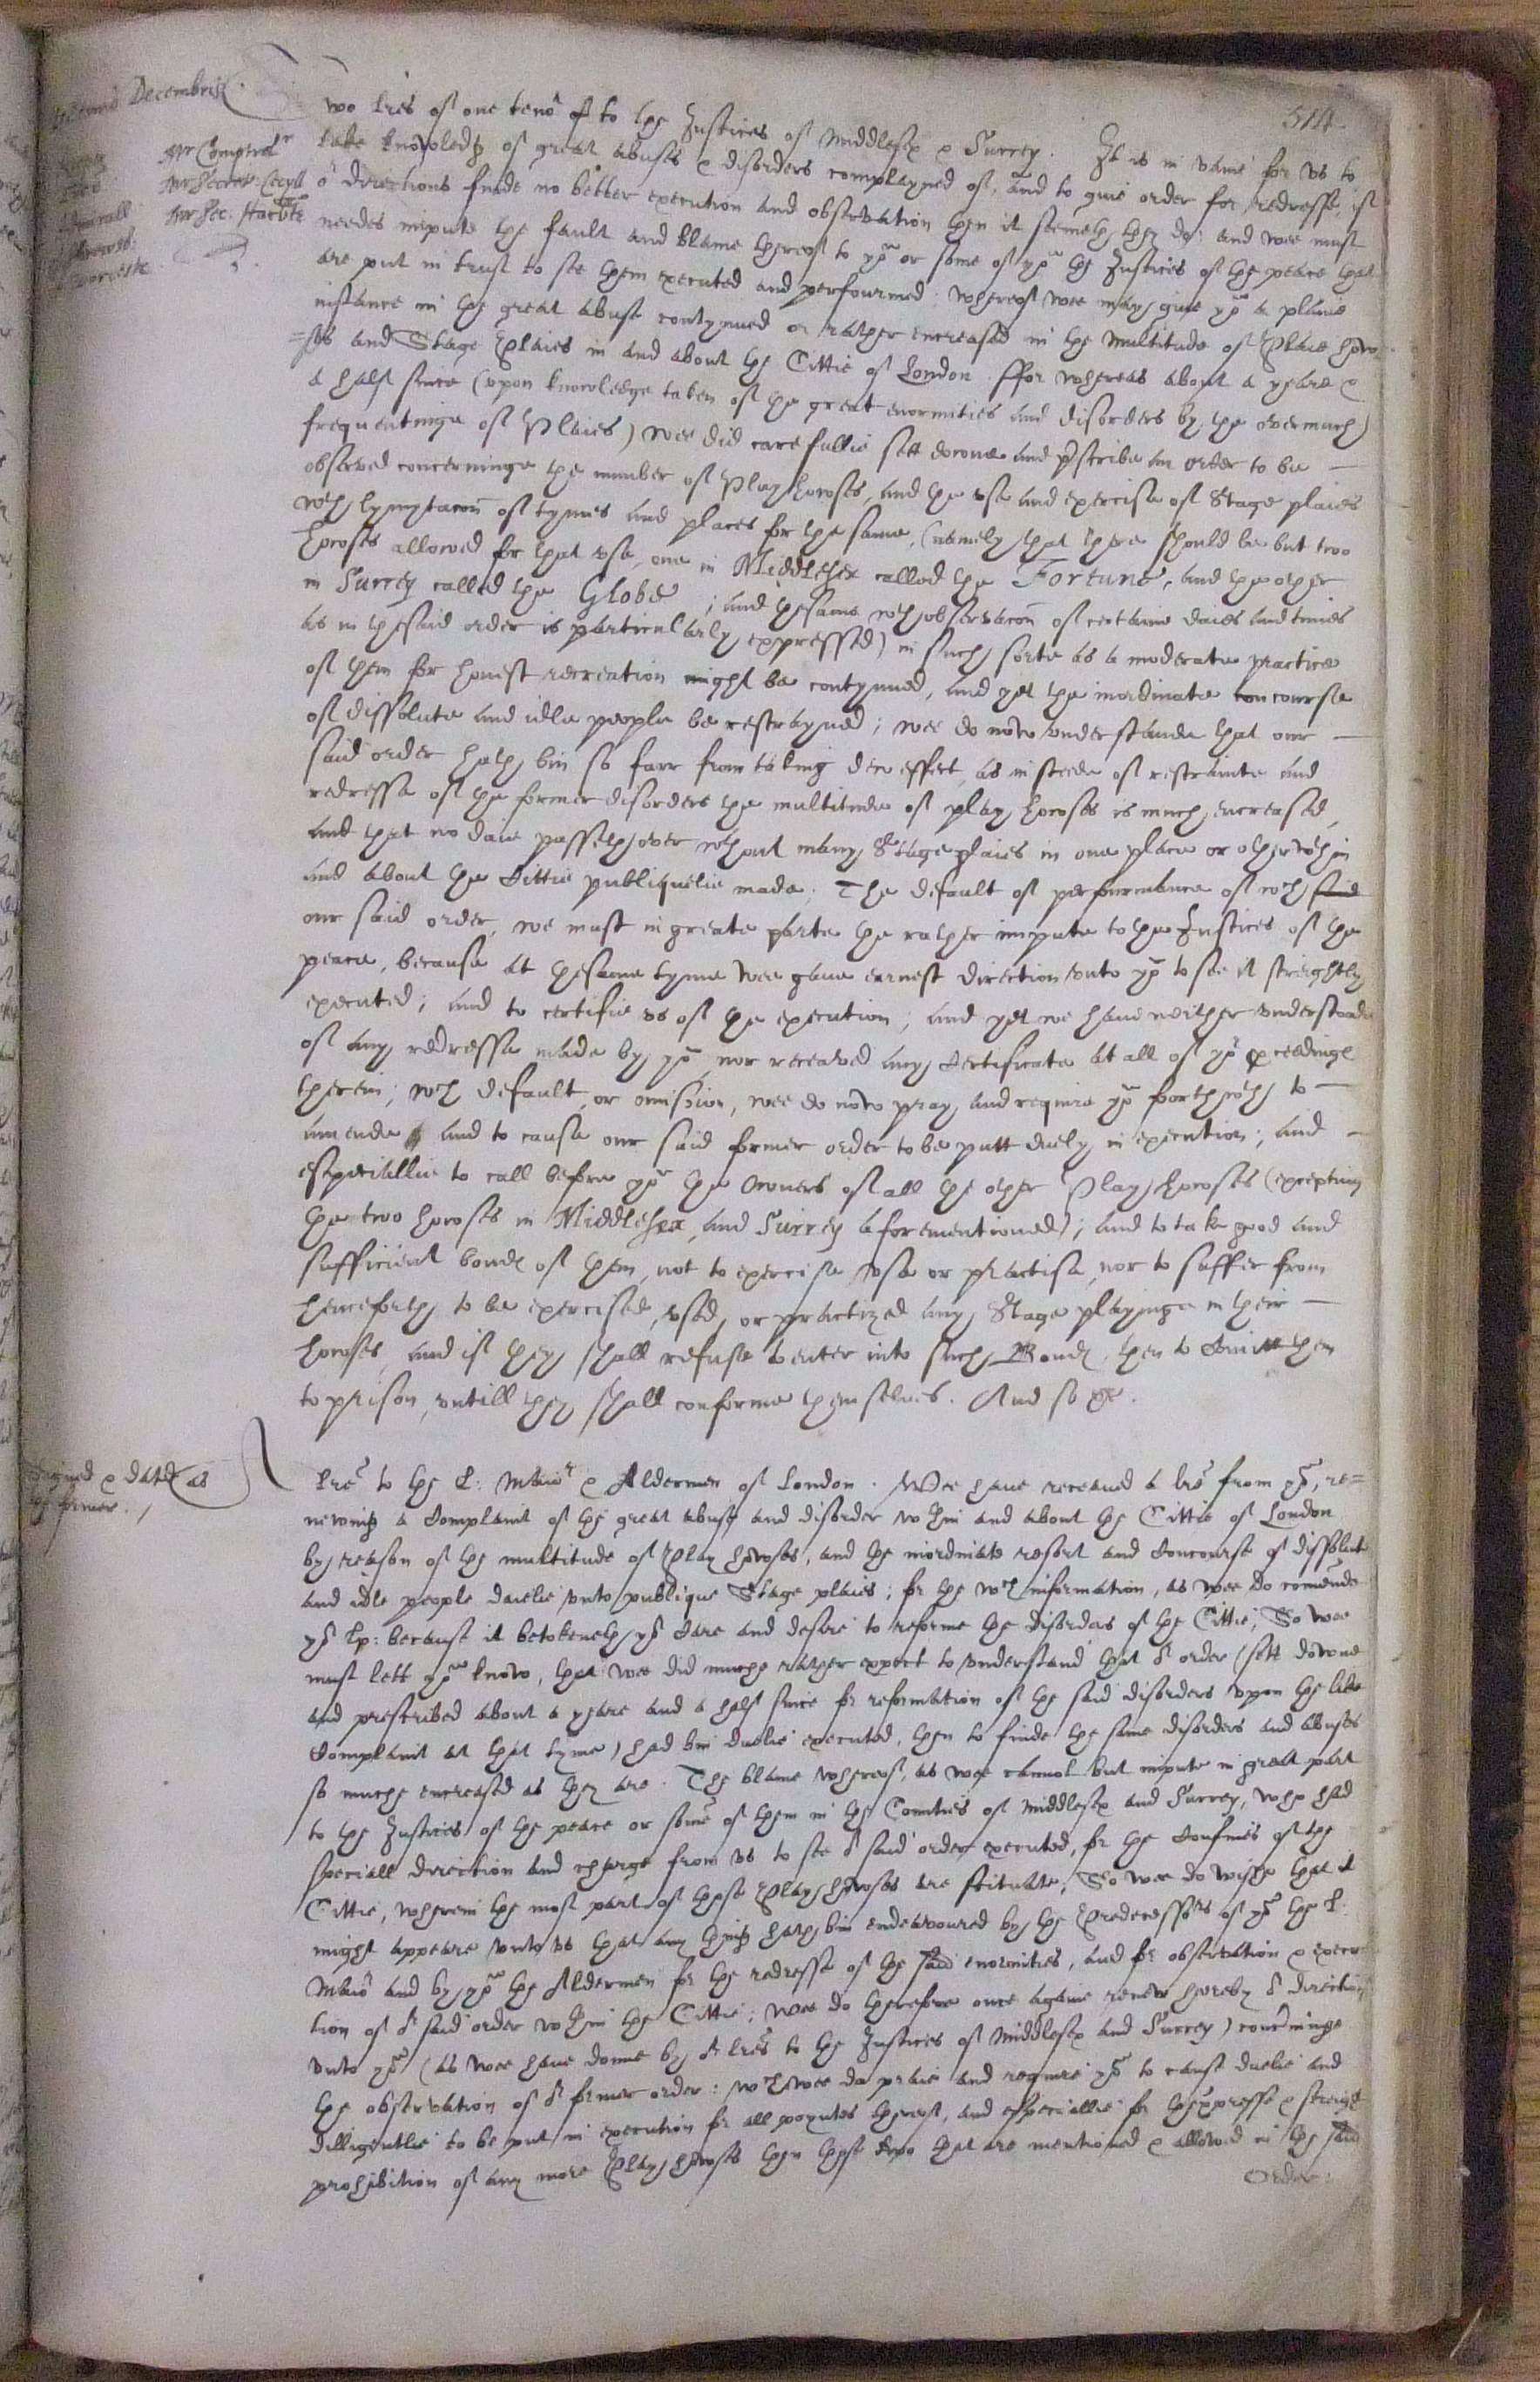 Decembris
514
Mr Comptrolr
Mr Secret. Cecyll
Mr Sec. Harbt
Admirall
worcester
Two lres of one tenor &c to the Justices of Middlesex & Surrey. It is in vaine for vs to
take knowledg of great abuses & disorders complayned of, and to giue order for redresse, if
or directions finde no better execution and observation then it seemeth they do: and wee must
needes impute the fault and blame thereof to yow or some of yow the Justices of the peace that
are put in trust to see them executed and perfourmed: whereof wee may giue yow a plaine
instance in the great abuse contynued or rather encreased in the multitude of Plaie howe-
=ses and Stage Plaies in and about the Cittie of London. ffor whereas about a yeare &
a half since (vpon knowledge taken of the great enormities and disorders by the overmuch
frequentinge of Plaies) wee did carefullie sett downe and pscribe an order to be —
observed concerninge the number of Play howses, and the vse and exercise of Stage plaies
wth lymytacon of tymes and places for the same, (namely that there should be but two
howses allowed for that vse, one in Middlesex called the Fortune, and the other
in Surrey called the Globe; and the same wth observacon of certaine daies and times
as in the said order is particularly expressed) in such sorte as a moderate practice
of them for honest recreation might be contynued, and yet the inordinate concourse
of dissolute and idle people be restrayned; wee do now vnderstande that our —
said order hath bin so farr from taking dew effect, as in steede of restrainte and
redresse of the former disorders the multitude of play howses is much encreased,
and that no daie passeth over wthout many Stage plaies in one place or other wthin
and about the Cittie publiquelie made. The default of perfourmance of wch said
our said order, we must in greate parte the rather impute to the Justices of the
peace, because at the same tyme wee gaue earnest direction vnto yow to see it streightly
executed; and to certifie vs of the execution; and yet we haue neither vnderstoode
of any redresse made by yow nor receaved any Certificate at all of yor pceedinge
therein; wch default or omission, wee do now pray and require yow forthwth to —
amende and to cause our said former order to be putt duely in execution; and —
especiallie to call before yow the Owners of all the other Play howses (excepting
the two howses in Middlesex and Surrey aforementioned); and to take good and
sufficient bonds of them, not to exercise vse or practise, nor to suffer from
henceforth to be exercised, vsed, or practized any Stage playinge in their —
howses, and if they shall refuse to enter into such Bonds, then to Comitt them
to prison, vntill they shall conforme themselves. And so &c.
Signed & dated as
the former. /
Lre to the L: Maior & Aldermen of London. Wee haue receaued a lre from yow, re=
newing a Complaint of the great abuse and disorder wthin and about the Cittie of London
by reason of the multitude of Play howses, and the inordinate resort and Concourse of dissolute
and idle people daielie vnto publique Stage plaies; for the wch information, as wee do comende
yor Lp: because it betokeneth yor Care and desire to reforme the disorders of the Cittie; So wee
must lett yow know, that wee did muche rather expect to vnderstand that or order (sett downe
and prescribed about a yeare and a half since for reformation of the said disorders vpon the like
Complaint at that tyme) had bin duelie executed, then to finde the same disorders and abuses
so muche encreased as they are. The blame whereof, as wee cannot but impute in great part
to the Justices of the peace or some of them in the Counties of Middlesex and Surrey, who had
speciall direction and charge from vs to see or said order executed, for the Confines of the
Cittie, wherein the most part of these Play howses are scituate; So wee do wishe that it
might appeare vnto vs that any thing hath bin endeavoured by the Predecessors of yow the L:
Maior and by yow the Aldermen for the redresse of the said enormities, and for observation & execu-
tion of or said order wthin the Cittie; Wee do therefore once againe renew hereby or direction
vnto yow (as wee haue donne by or lres to the Justices of Middlesex and Surrey) concerninge
the observation of or former order: wch wee do praie and require yow to cause duelie and
dilligentlie to be put in execution for all poyntes thereof, and especiallie for thexpresse & streight
prohibition of any more Play howses then those two that are mentioned & allowed in the said
Order: